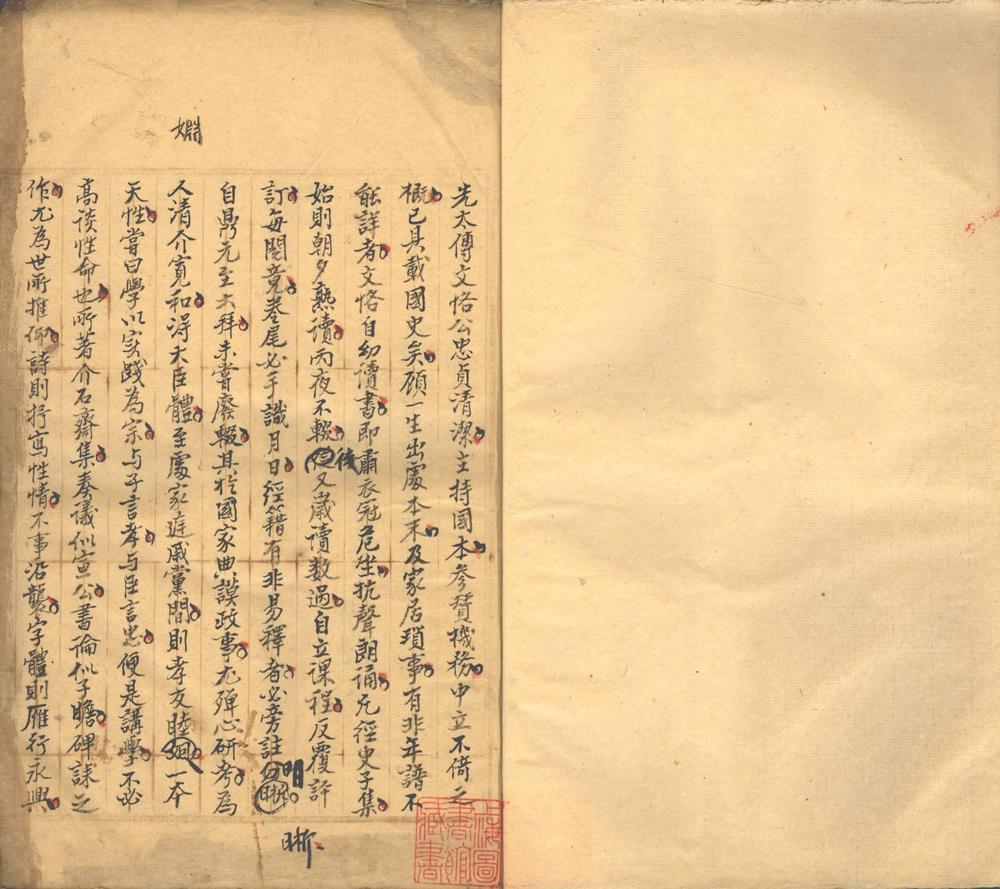 先太傅文恪公忠貞清潔主持國本參贊機務中立不倚之
概已具載國史矣顧一生出處本末及家居瑣事有非年譜不
能詳者文恪自幼讀書即肅衣冠危坐抗聲朗誦凡經史子集
始則朝夕熟讀丙夜不輟後又歲讀數過自立課程反覆評
訂每閱竟卷尾必手識月日經籍有非易釋者必旁註分晰明
自鼎元至大拜未嘗廢輟其於國家典謨政事尤殫心研考為
人清介寬和得大臣體至處家庭戚黨間則孝友睦姻一本
天性嘗曰學以實踐為宗与子言孝与臣言忠便是講學不必
高談性命也所著介石齋集奏議似宣公書論似子瞻碑誄之
作尤為世所推仰詩則抒寫性情不事沿襲字體則雁行永興
嫻
晰
上海圖書館藏書